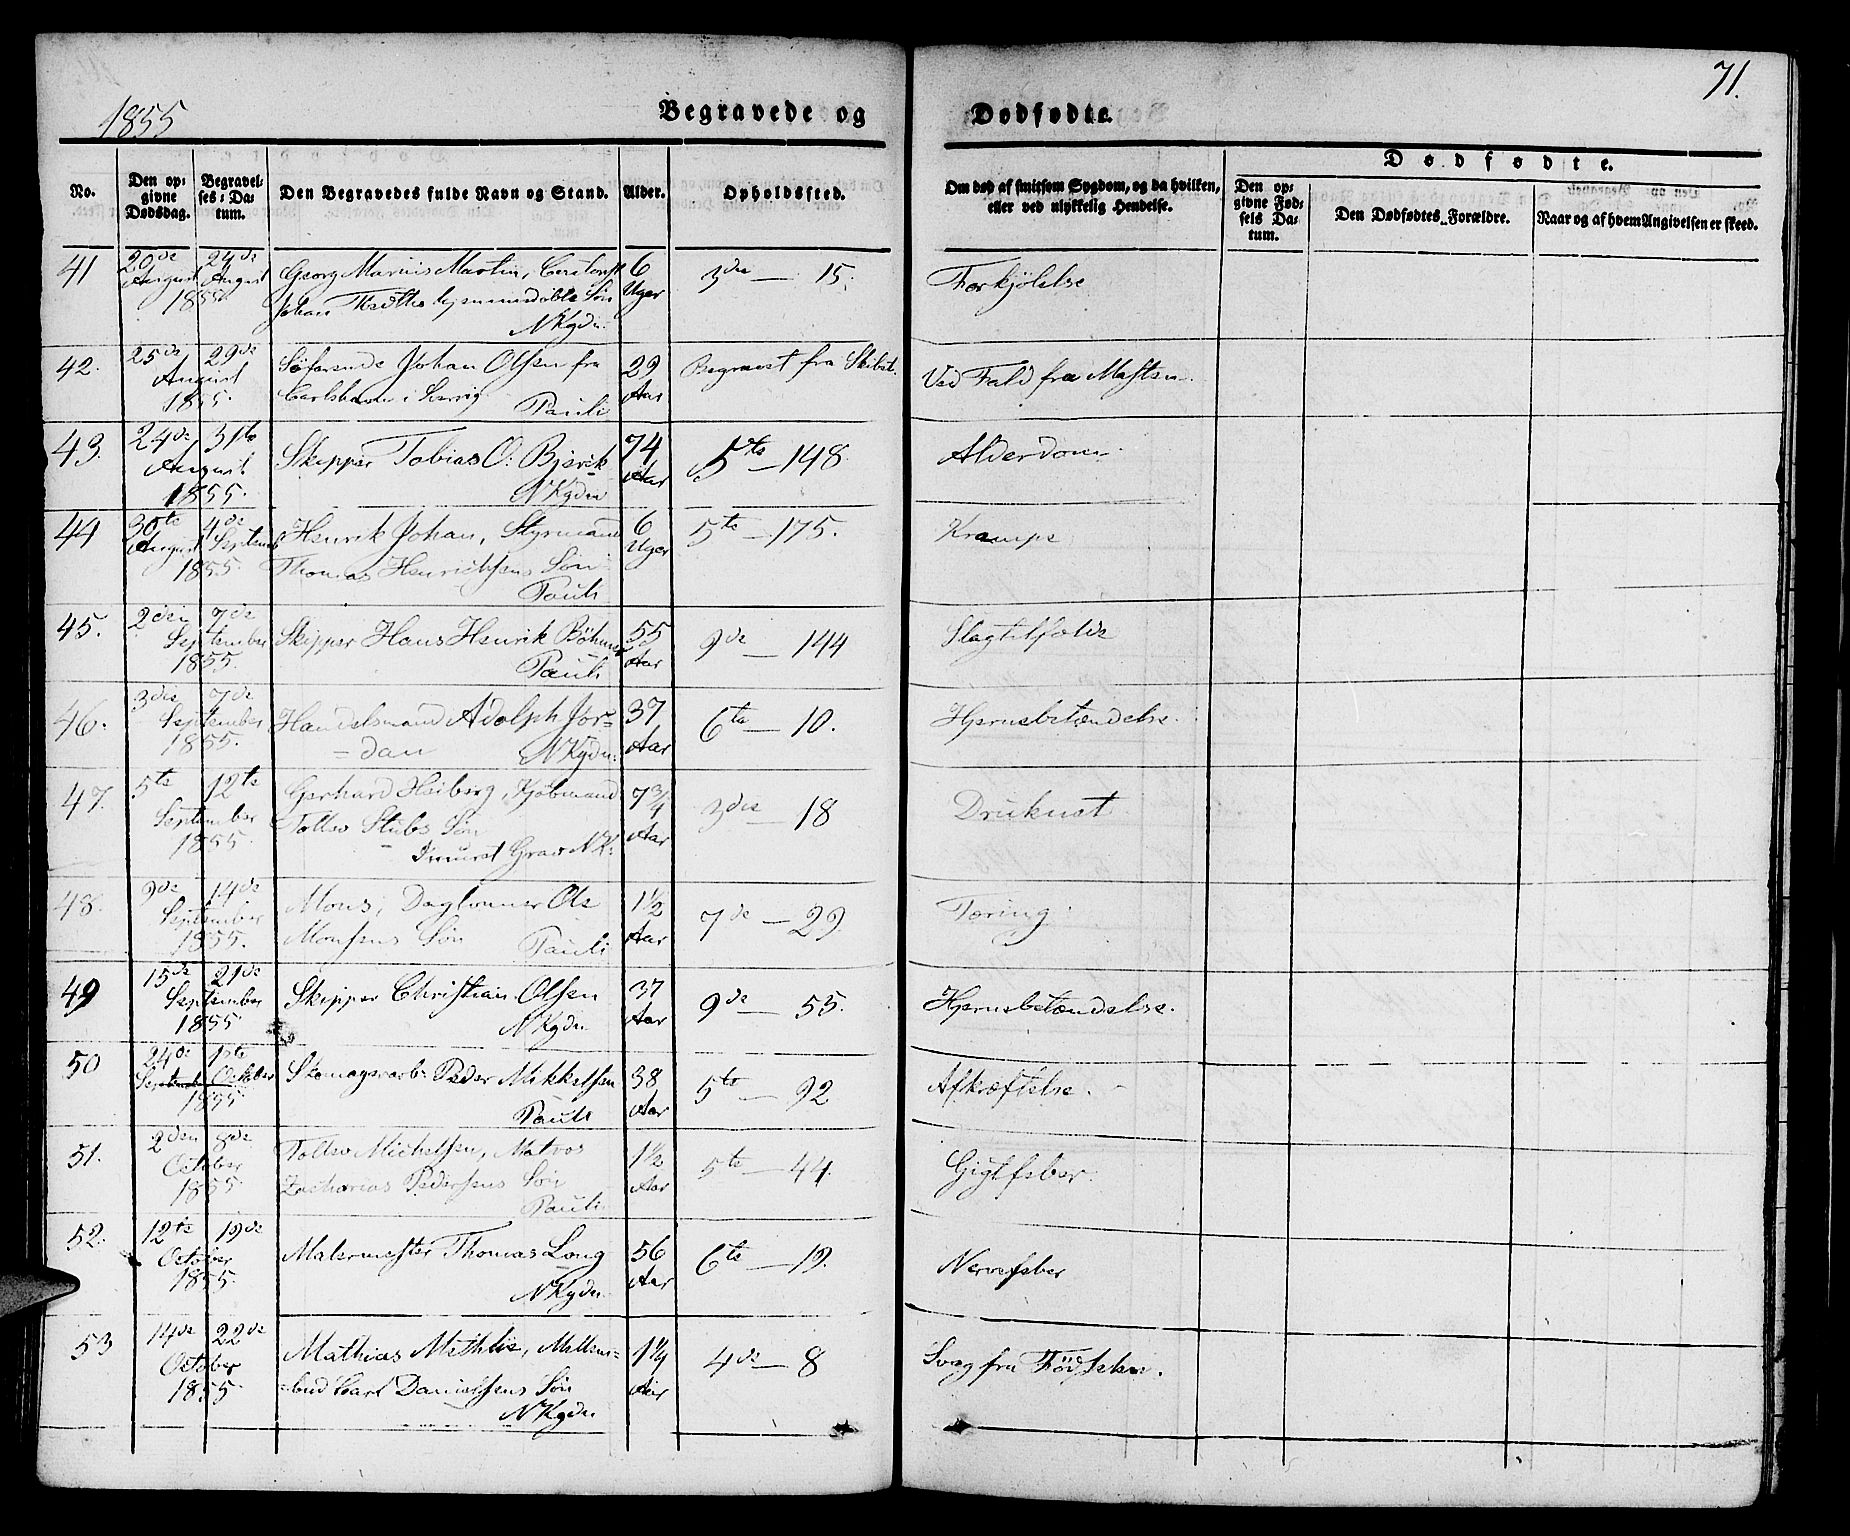 71.
1855
Begravede og Dødfødte.
Dødfødte.
No.
Den opgivne Dødsdag.
Begravelses-Datum.
Den Begravedes fulde Navn og Stand.
Alder.
Opholdssted.
Om død af smitsom Sygdom, og da hvilken, eller ved ulykkelig Hendelse.
Den opgivne Fødsels Datum.
Den Dødfødtes Forældre.
Naar og af hvem Angivelsen er skeed.
41 20de 24de Georg Marius Martin, 6 3die — 15. Forkjølelse
August August Johan Søn Uger
1855 NKgdn.
42. 25de 29de Søfarende Johan Olsen fra 29 Begravet fra Skibet. Ved Fald fra Masten
August Carlshavn i Aar
1855. Pauli
43. 24de 31te Skipper Tobias O: Bjervik 74 5te — 148 Alderdom
August Aar
1855. NKgdn
44 30te 4de Henrik Johan, Styrmand 6 5te — 175. Krampe
August Septemb Thomas Henrichsens Søn Uger
1855. Pauli
45. 2den 7de Skipper Hans Henrik Bøhmer 55 9de — 144 Slagtilfælde
September Aar
1855. Pauli
46. 3die 7de Handelsmand Adolph Jor= 37 6te — 10. Hjernebetændelse.
September =dan Aar
1855. NKgdn.
47. 5te 12te Gerhard Heiberg, Kjøbmand 7¾ 3die — 18 Druknet
September Stubs Søn Aar
1855. Grav NK.
48. 9de 14de Mons, Daglønner Ole 1½ 7de — 29. Tæring
September Monsens Søn Aar
1855. Pauli
49 15de 21de Skipper Christian Olsen 37 9de — 55. Hjernebetændelse.
September Aar
1855 NKgdn
50 24de 1ste Skomagerarb: Peder Mikkelsen 38 5te — 92 Afkræftelse.
September October Aar
1855. Pauli
51. 2den 8de Michelsen, Matros 1½ 5te — 44. Gigtfeber
October Zacharias Pedersens Søn Aar
1855 Pauli
52. 12te 19de Malermester Thomas Long 56 6te — 19. Nervefeber
October Aar
1855. NKgdn
53 14de 22de Mathias 1¼ 4de — 8 Svag fra Fødselen.
October =bud Carl Danielsens Søn Aar
1855 NKgdn